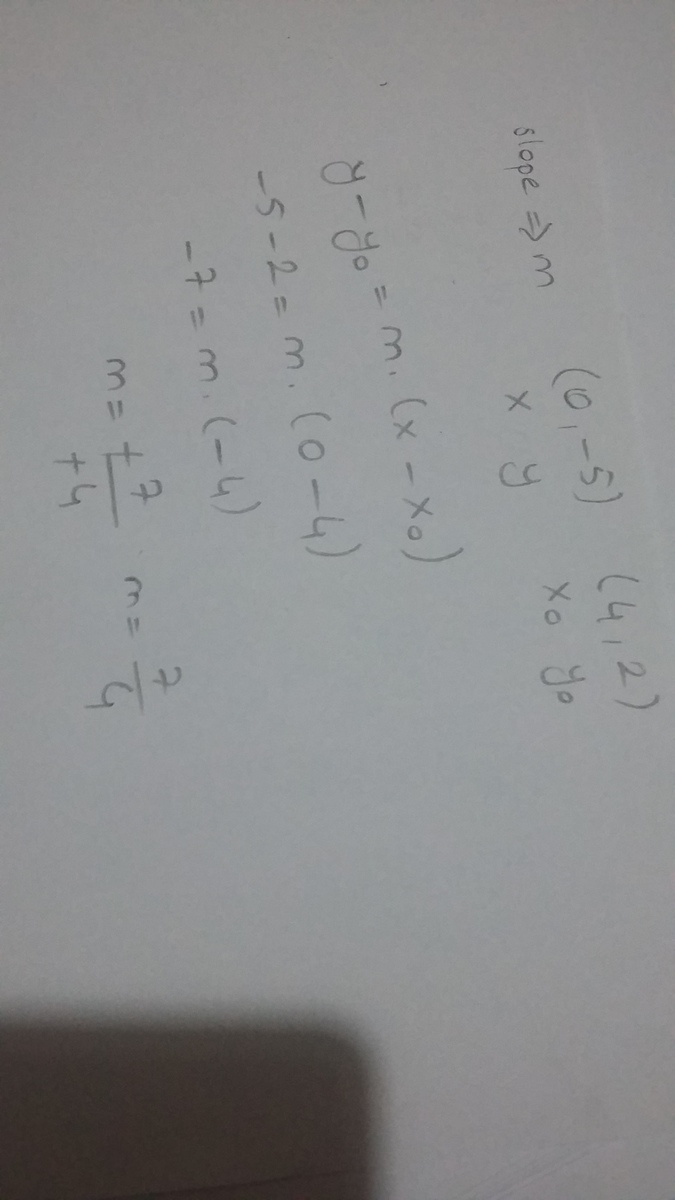 slope ⇒ m
(0, -5) (4, 2)
x y x₀ y₀
y - y₀ = m. (x - x₀)
-5 - 2 = m. (0 - 4)
-7 = m. (-4)
m = +7/+4 m = 7/4